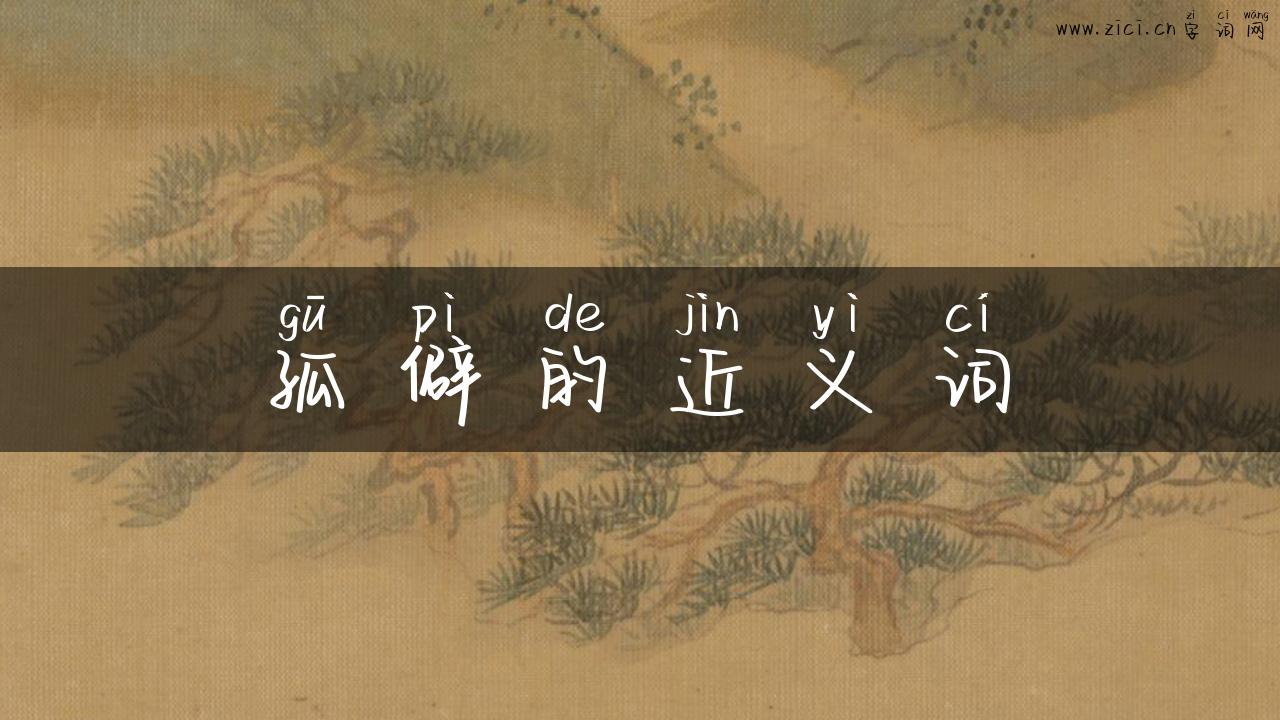 zì cí wǎng
www.zici.cn 字词网
gū pì de jìn yì cí
孤僻的近义词